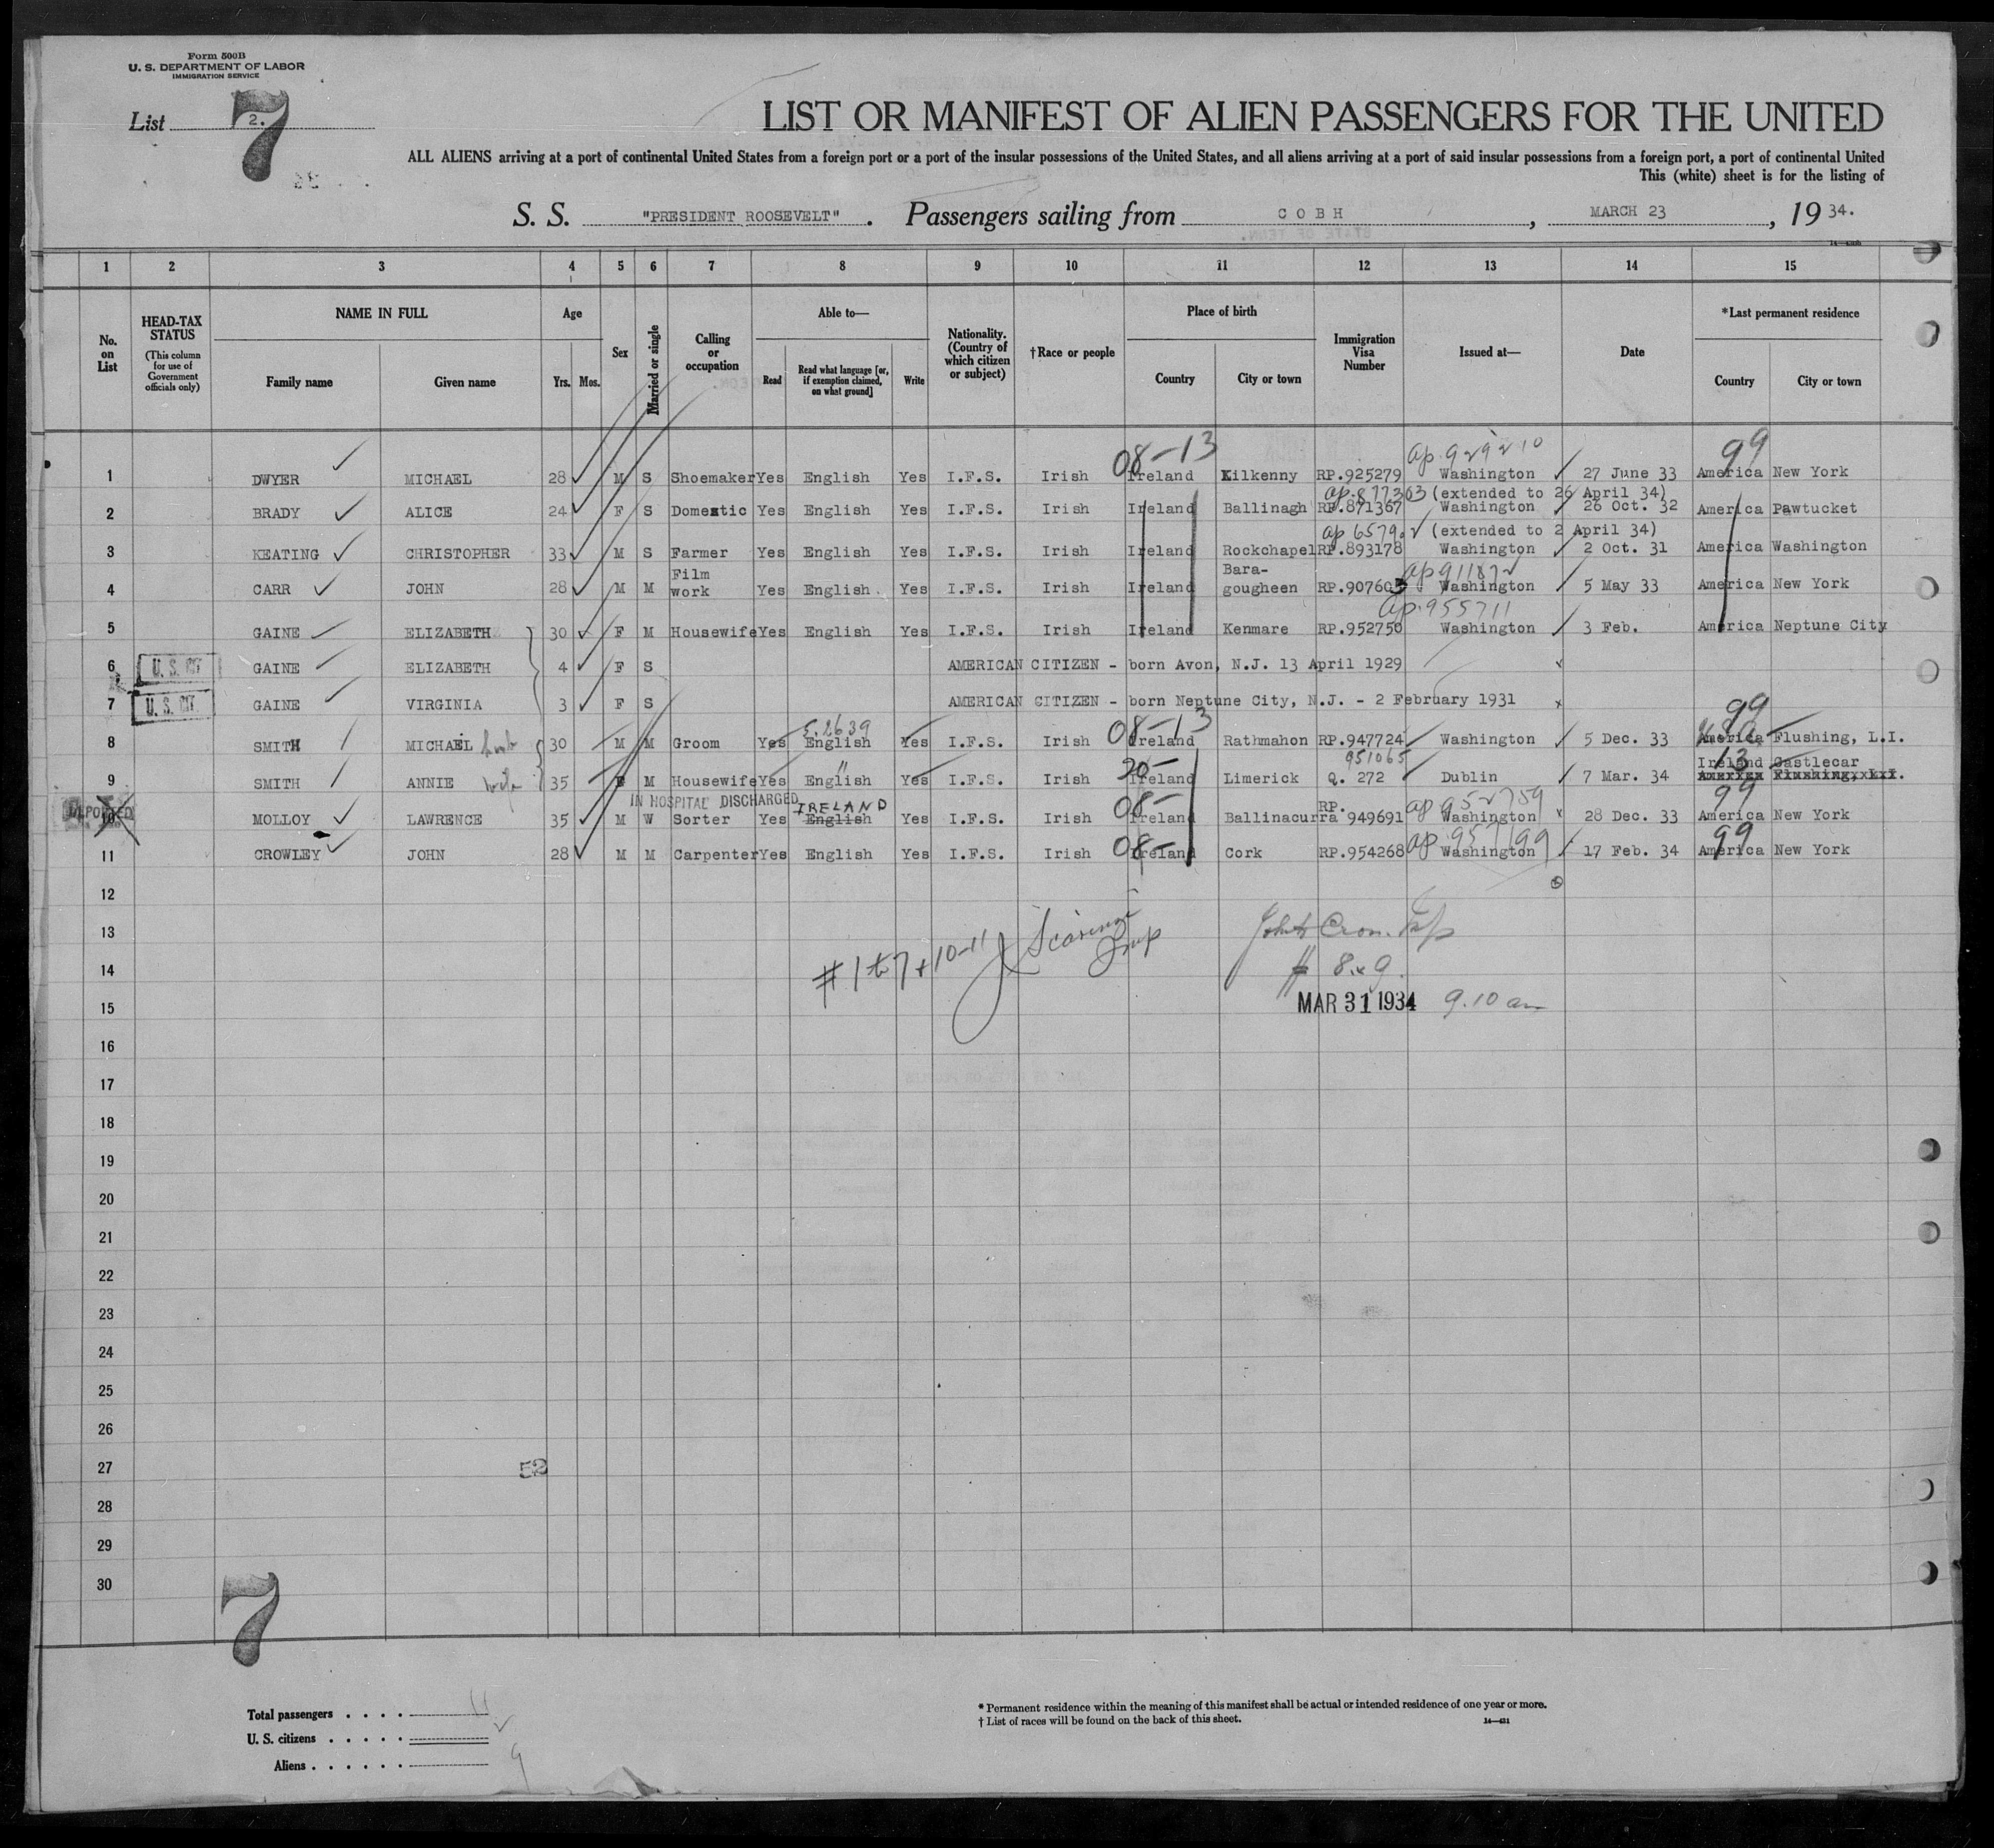 Form 500B
U. S. DEPARTMENT OF LABOR
IMMIGRATION SERVICE
List 2.
7
LIST OR MANIFEST OF ALIEN PASSENGERS FOR THE UNITED
ALL ALIENS arriving at a port of continental United States from a foreign port or a port of the insular possessions of the United States, and all aliens arriving at a port of said insular possessions from a foreign port, a port of continental United
This (white) sheet is for the listing of
S. S. "PRESIDENT ROOSEVELT". Passengers sailing from COBH, MARCH 23, 19 34.
1 2 3 4 5 6 7 8 9 10 11 12 13 14 15
No. on List
HEAD-TAX STATUS (This column for use of Government officials only)
NAME IN FULL
Family name Given name
Age
Yrs. Mos.
Sex
Married or single
Calling or occupation
Able to—
Read
Read what language [or, if exemption claimed, on what ground]
Write
Nationality. (Country of which citizen or subject)
†Race or people
Place of birth
Country City or town
Immigration Visa Number
Issued at—
Date
*Last permanent residence
Country City or town
08-13 ap. 929210 99
1 DWYER MICHAEL 28 M S Shoemaker Yes English Yes I.F.S. Irish Ireland Kilkenny RP.925279 Washington 27 June 33 America New York
ap. 877303 (extended to 26 April 34)
2 BRADY ALICE 24 F S Domestic Yes English Yes I.F.S. Irish Ireland Ballinagh RP.871367 Washington 26 Oct. 32 America Pawtucket
(extended to 2 April 34)
3 KEATING CHRISTOPHER 33 M S Farmer Yes English Yes I.F.S. Irish Ireland Rockchapel RP.893178 Washington 2 Oct. 31 America Washington
4 CARR JOHN 28 M M Film work Yes English Yes I.F.S. Irish Ireland Bara-gougheen RP.907603 Washington 5 May 33 America New York
ap. 955711
5 GAINE ELIZABETH 30 F M Housewife Yes English Yes I.F.S. Irish Ireland Kenmare RP.952750 Washington 3 Feb. America Neptune City
6 U. S. CIT. GAINE ELIZABETH 4 F S AMERICAN CITIZEN - born Avon, N.J. 13 April 1929
7 U. S. CIT. GAINE VIRGINIA 3 F S AMERICAN CITIZEN - born Neptune City, N.J. - 2 February 1931
2639 08-13 99
8 SMITH MICHAEL 30 M M Groom Yes English Yes I.F.S. Irish Ireland Rathmahon RP.947724 Washington 5 Dec. 33 America Flushing, L.I.
951065 13 Ireland Castlecar
9 SMITH ANNIE wife 35 F M Housewife Yes English Yes I.F.S. Irish 20- Ireland Limerick Q. 272 Dublin 7 Mar. 34 America Flushing, L.I.
IN HOSPITAL DISCHARGED
IRELAND 08- ap 952759 99
10 MOLLOY LAWRENCE 35 M W Sorter Yes English Yes I.F.S. Irish Ireland Ballinacurra RP. 949691 Washington 28 Dec. 33 America New York
08- ap 957199 99
11 CROWLEY JOHN 28 M M Carpenter Yes English Yes I.F.S. Irish Ireland Cork RP.954268 Washington 17 Feb. 34 America New York
12
13
# 1 to 7 + 10-11 Insp
14
# 8 & 9.
15
MAR 31 1934 9.10 am
16
17
18
19
20
21
22
23
24
25
26
27
52
28
29
30
7
Total passengers . . . . 11
U. S. citizens . . . . .
Aliens . . . . . . 9
* Permanent residence within the meaning of this manifest shall be actual or intended residence of one year or more.
† List of races will be found on the back of this sheet.
14—431